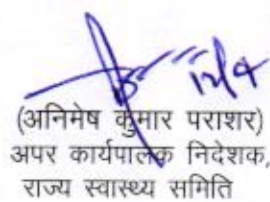 12/9
(अनिमेष कुमार पराशर)
अपर कार्यपालक निदेशक,
राज्य स्वास्थ्य समिति